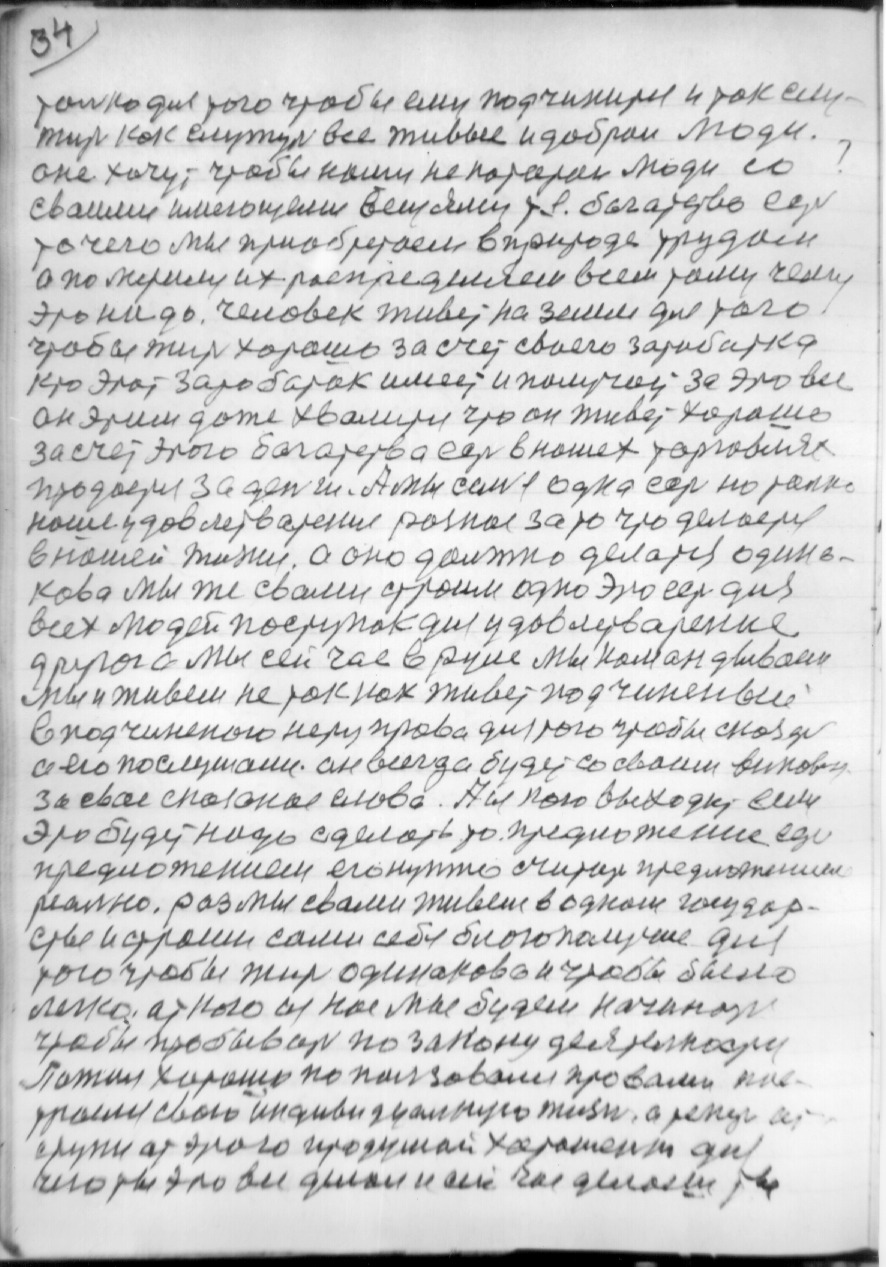 34
толко для того чтобы ему подчинится и так слу-
жит как служут все живые и добраи люди. ?
оне хочут чтобы наши не потерали люди со
своими имеющеми вещями т.е. богатство есть
то чего мы приобретаем в природе трудом
а потом их роспределяем всем тому чему
это надо. человек живет на земли для того
чтобы жит хорошо за счет своего заработка
кто этот заработак имеет и получает за это все
он этим даже хвалится что он живет хорошо
за счет этого богатества ест в нашех торговлях
продается за денги. А мы семя одна ест но толко
наше удовлетварение разное за то что делается
в нашей жизни. а оно должно делатся одина-
кова мы же с вами строим одно это ест для
всех людей поступок для удовлетварение
другого мы сейчас в руле мы командываем
мы и живем не так как живет подчиненый
в подчиненого нету права для того чтобы сказат
а его послушали. он всегда будет со своим виноват
за свое сказаное слова. А из кого выходит если
это будет надо сделать то предложение ест
предложением его нужно считат предложением
реално. раз мы с вами живем в одном государ-
стве и строим сами себе благополучие для
того чтобы жит одинакова и чтобы было
легко. от кого из нас мы будем начинат
чтобы пробыват по закону деятелности
Пажил хорошо попользовался правами пос-
троели свою индивидуалную жизн. а теперь от-
ступи от этого продумай хорошенько для
чего ты это все делал и сейчас делаеш ты